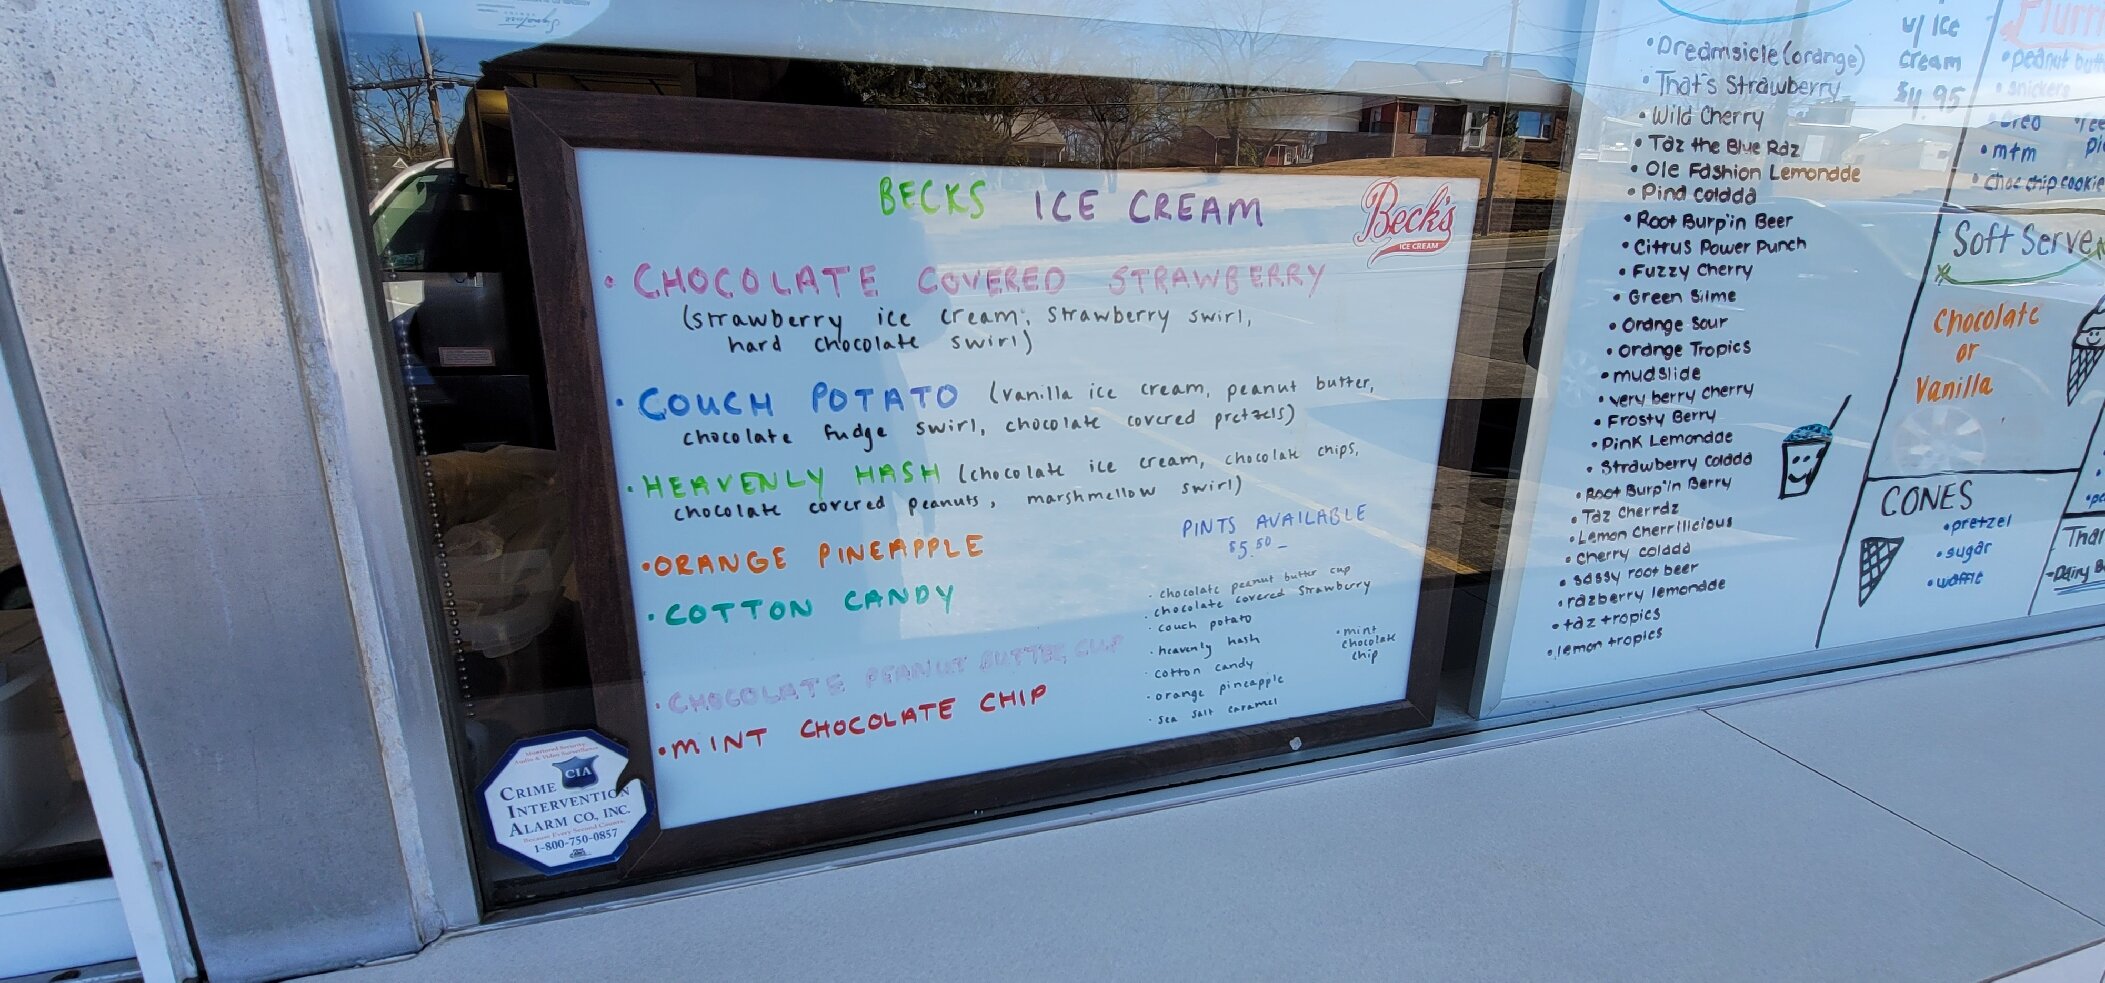 BECKS ICE CREAM
Beck's
ICE CREAM
• CHOCOLATE COVERED STRAWBERRY
(strawberry ice cream, strawberry swirl,
hard chocolate swirl)
• COUCH POTATO (vanilla ice cream, peanut butter,
chocolate fudge swirl, chocolate covered pretzels)
• HEAVENLY HASH (chocolate ice cream, chocolate chips,
chocolate covered peanuts, marshmellow swirl)
• ORANGE PINEAPPLE
• COTTON CANDY
• CHOCOLATE PEANUT BUTTER CUP
• MINT CHOCOLATE CHIP
PINTS AVAILABLE
$5.50
• chocolate peanut butter cup
• chocolate covered strawberry
• couch potato
• heavenly hash
• cotton candy
• orange pineapple
• sea salt caramel
• mint
chocolate
chip
Monitored Security
Audio & Video Surveillance
CIA
CRIME
INTERVENTION
ALARM CO, INC.
Because Every Second Counts
1-800-750-0857
• Dreamsicle (orange)
• That's Strawberry
• Wild Cherry
• Taz the Blue Raz
• Ole Fashion Lemonade
• Pina Colada
• Root Burp'in Beer
• Citrus Power Punch
• Fuzzy Cherry
• Green Slime
• Orange Sour
• Orange Tropics
• mudslide
• very berry cherry
• Frosty Berry
• Pink Lemonade
• Strawberry Colada
• Root Burp'in Berry
• Taz Cherraz
• Lemon Cherrilicious
• Cherry colada
• sassy root beer
• razberry lemonade
• taz tropics
• lemon tropics
w/ Ice
cream
$4.95
Flurr
• peanut butt
• snickers
• oreo
• m+m
• choc chip cookie
Soft Serve
Chocolate
or
Vanilla
CONES
• pretzel
• sugar
• waffle
Than
-Dairy